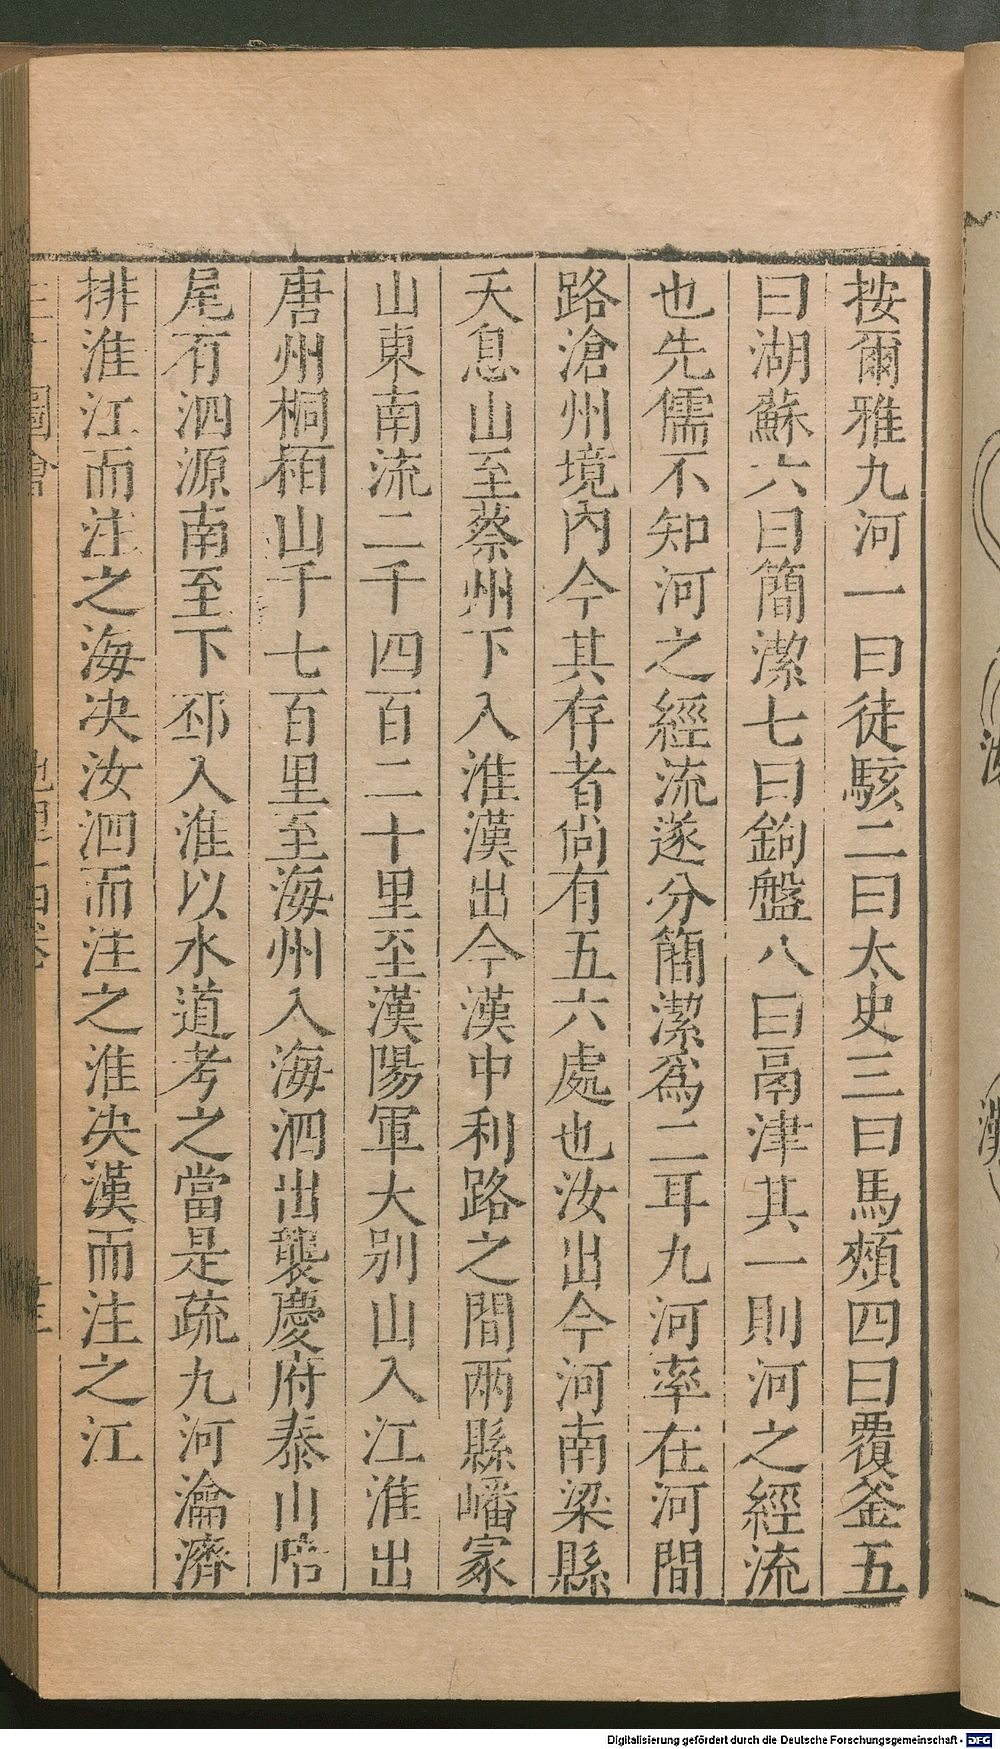 按爾雅九河一曰徒駭二曰太史三曰馬頰四曰覆釜五
曰湖蘇六曰簡潔七曰鉤盤八曰鬲津其一則河之經流
也先儒不知河之經流遂分簡潔爲二耳九河率在河間
路滄州境內今其存者尙有五六處也汝出今河南梁縣
天息山至蔡州下入淮漢出今漢中利路之間兩縣嶓冡
山東南流二千四百二十里至漢陽軍大别山入江淮出
唐州桐栢山千七百里至海州入海泗出襲慶府泰山陪
尾有泗源南至下邳入淮以水道考之當是疏九河瀹濟
排淮江而注之海决汝泗而注之淮决漢而注之江
三才圖會 地理十四卷
湖
漢
Digitalisierung gefördert durch die Deutsche Forschungsgemeinschaft - DFG